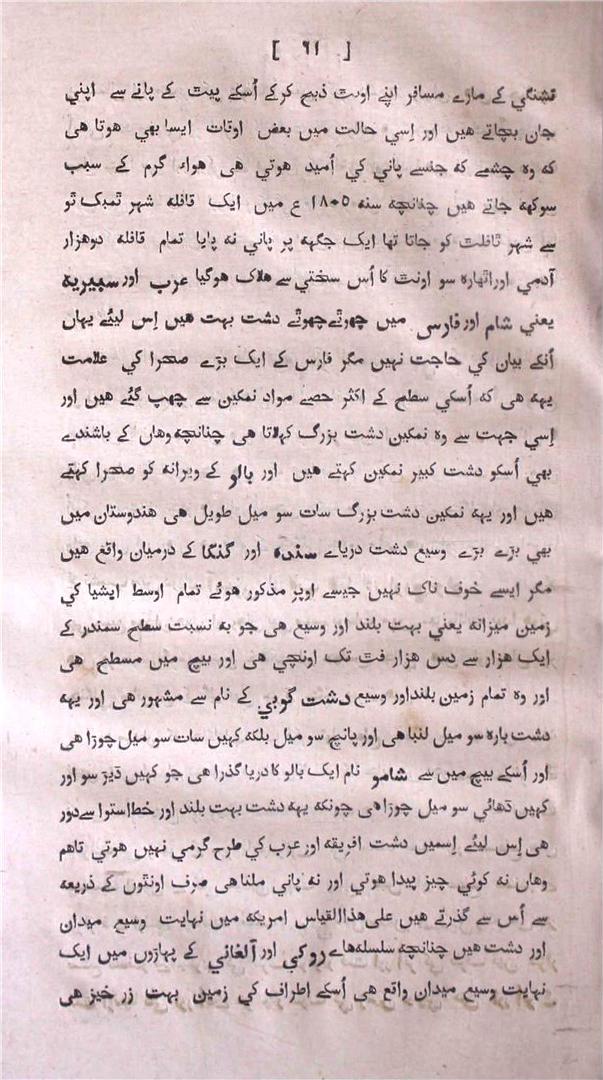 [ ٩١ ]
تشنگي کے مارے مسافر اپنے اونٹ ذبح کرکے اُسکے پیٹ کے پانے سے اپنی
جان بچاتے هیں اور اِسي حالت میں بعض اوقات ایسا بھي هوتا هی
که وہ چشمے که جنسے پاني کي اُمید هوتي هی هواء گرم کے سبب
سوکهه جاتے هیں چنانچه سنه ١٨٠٥ ع میں ایک قافله شہر ٹمبک ٹو
سے شہر ٹافلٹ کو جاتا تھا ایک جگہه پر پاني نه پایا تمام قافله دوهزار
آدمي اور اٹھاره سو اونٹ کا اُس سختي سے هلاک هوگیا عرب اور سیبریه
یعني شام اور فارس میں چھوٹے چھوٹے دشت بہت هیں اِس لیئے یہاں
اُنکے بیان کي حاجت نہیں مگر فارس کے ایک بڑے صحرا کي علامت
یہه هی که اُسکي سطح کے اکثر حصے مواد نمکین سے چھپ گئے هیں اور
اِسي جہت سے وه نمکین دشت بزرگ کہلاتا هی چنانچه وهاں کے باشندے
بھي اُسکو دشت کبیر نمکین کہتے هیں اور بالو کے ویرانه کو صحرا کہتے
هیں اور یہه نمکین دشت بزرگ سات سو میل طویل هی هندوستان میں
بھي بڑے بڑے وسیع دشت دریاے سنده اور گنگا کے درمیان واقع هیں
مگر ایسے خوف ناک نہیں جیسے اوپر مذکور هوئے تمام اوسط ایشیا کي
زمین میزانه یعني بہت بلند اور وسیع هی جو به نسبت سطح سمندر کے
ایک هزار سے دس هزار فٹ تک اونچي هی اور بیچ میں مسطح هی
اور وه تمام زمین بلند اور وسیع دشت گوبي کے نام سے مشہور هی اور یہه
دشت باره سو میل لنبا هی اور پانچ سو میل بلکه کہیں سات سو میل چوڑا هی
اور اُسکے بیچ میں سے شامو نام ایک بالو کا دریا گذرا هی جو کہیں ڈیڑ سو اور
کہیں ڈھائي سو میل چوڑا هی چونکه یہه دشت بہت بلند اور خط استوا سے دور
هی اِس لیئے اِسمیں دشت افریقه اور عرب کي طرح گرمي نہیں هوتي تاهم
وهاں نه کوئي چیز پیدا هوتي اور نه پاني ملتا هی صرف اونٹوں کے ذریعه
سے اُس سے گذرتے هیں علی هذا القیاس امریکه میں نہایت وسیع میدان
اور دشت هیں چنانچه سلسلهاے روکي اور آلغاني کے پہاڑوں میں ایک
نہایت وسیع میدان واقع هی اُسکے اطراف کي زمین بہت زر خیز هی